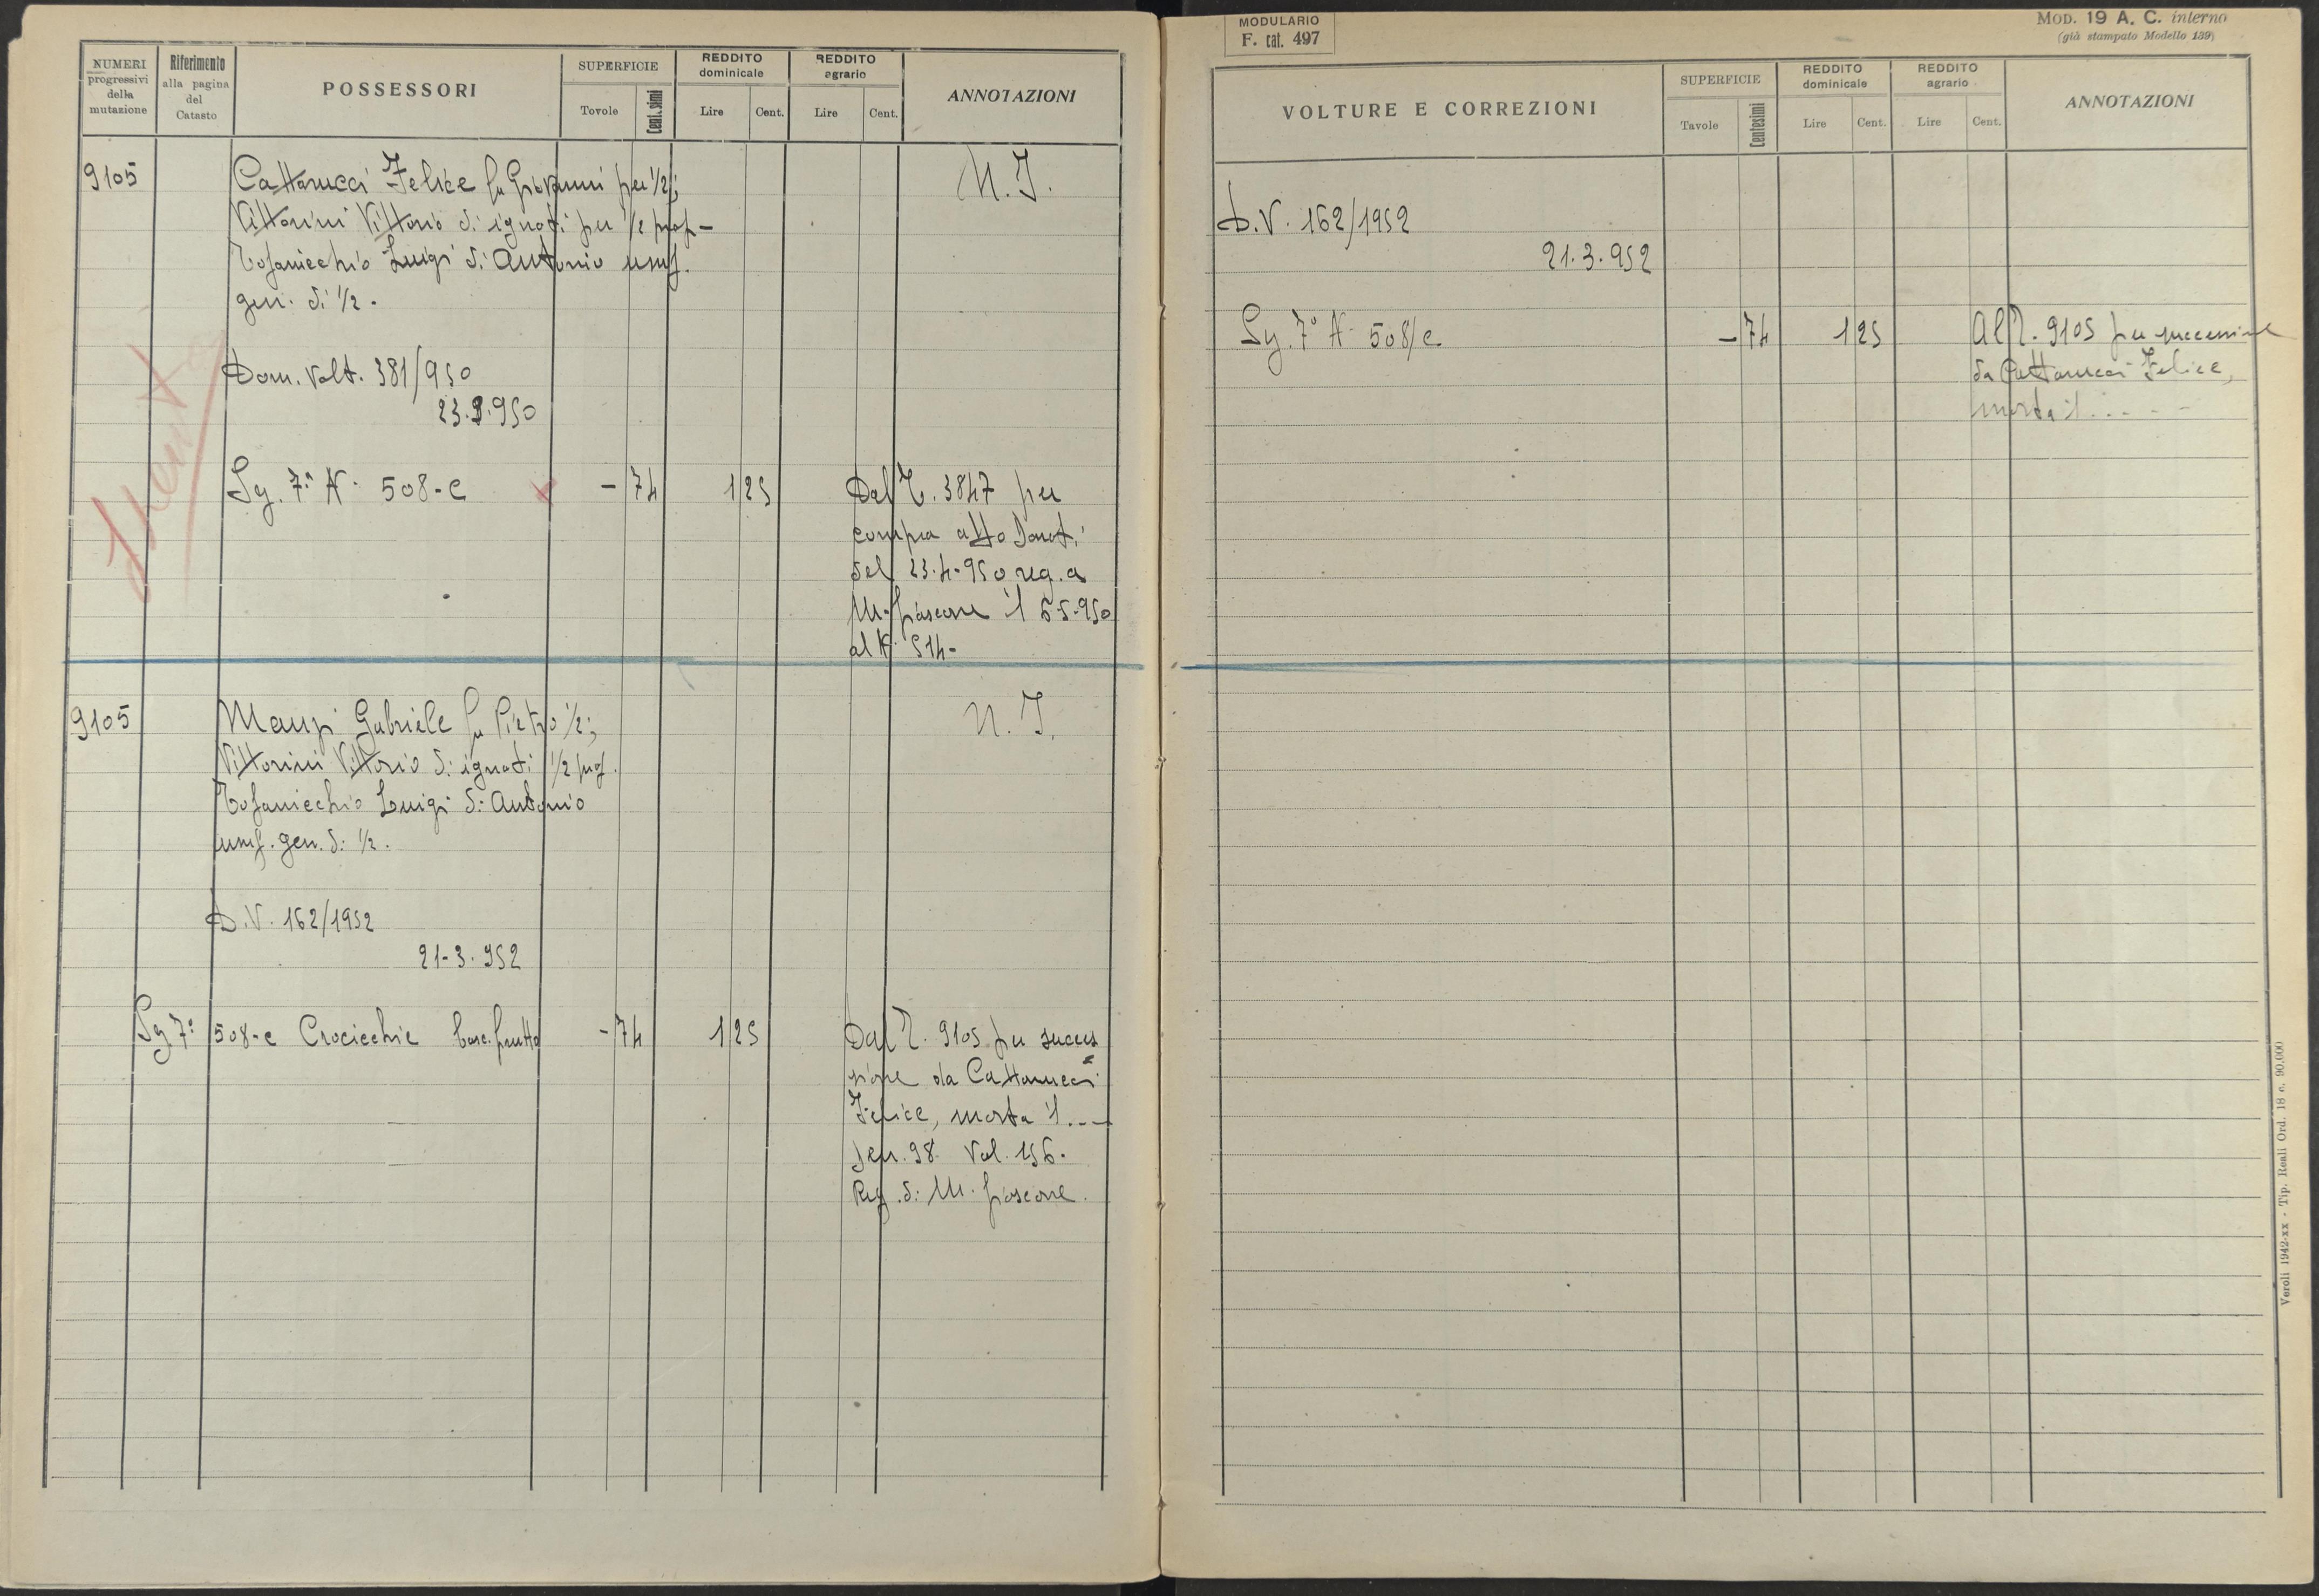 NUMERI progressivi della mutazione
Riferimento alla pagina del Catasto
POSSESSORI
SUPERFICIE
Tovole
Cent.simi
REDDITO dominicale
Lire
Cent.
REDDITO agrario
Lire
Cent.
ANNOTAZIONI
9105
Cattarucci Felice fu Giovanni per 1/2;
N. I.
Vittorini Vittorio di ignoti per 1/2 prop-
Tofanicchio Luigi di Antonio usuf.
gen. di 1/2.
Dom. Volt. 381/950
23.9.950
Sg. 7° N. 508-c
x
- 74
1 25
Dal T. 3847 per
compra atto Donati
del 23.4-950 reg. a
M. fiascone il 5-5-950
al N. 514-
9105
Manzi Gabriele fu Pietro 1/2;
N. I.
Vittorini Vittorio di ignoti 1/2 prop.
Tofanicchio Luigi di Antonio
usuf. gen. di 1/2.
D.V. 162/1952
21-3.952
Sg 7°
508-c Crocicchie bosc. frutto
- 74
1 25
Dal T. 9105 per succes
sione da Cattarucci
Felice, morta il ....
Den. 98 Vol. 156.
Reg. di M. fiascone.
MODULARIO
F. cat. 497
MOD. 19 A. C. interno
(già stampato Modello 139)
VOLTURE E CORREZIONI
SUPERFICIE
Tavole
Centesimi
REDDITO dominicale
Lire
Cent.
REDDITO agrario
Lire
Cent.
ANNOTAZIONI
D.V. 162/1952
21.3.952
Sg. 7° N. 508/c.
- 74
1 25
Al T. 9105 per successione
da Cattarucci Felice,
morta il .....
Veroli 1942-xx - Tip. Reali Ord. 18 c. 90.000